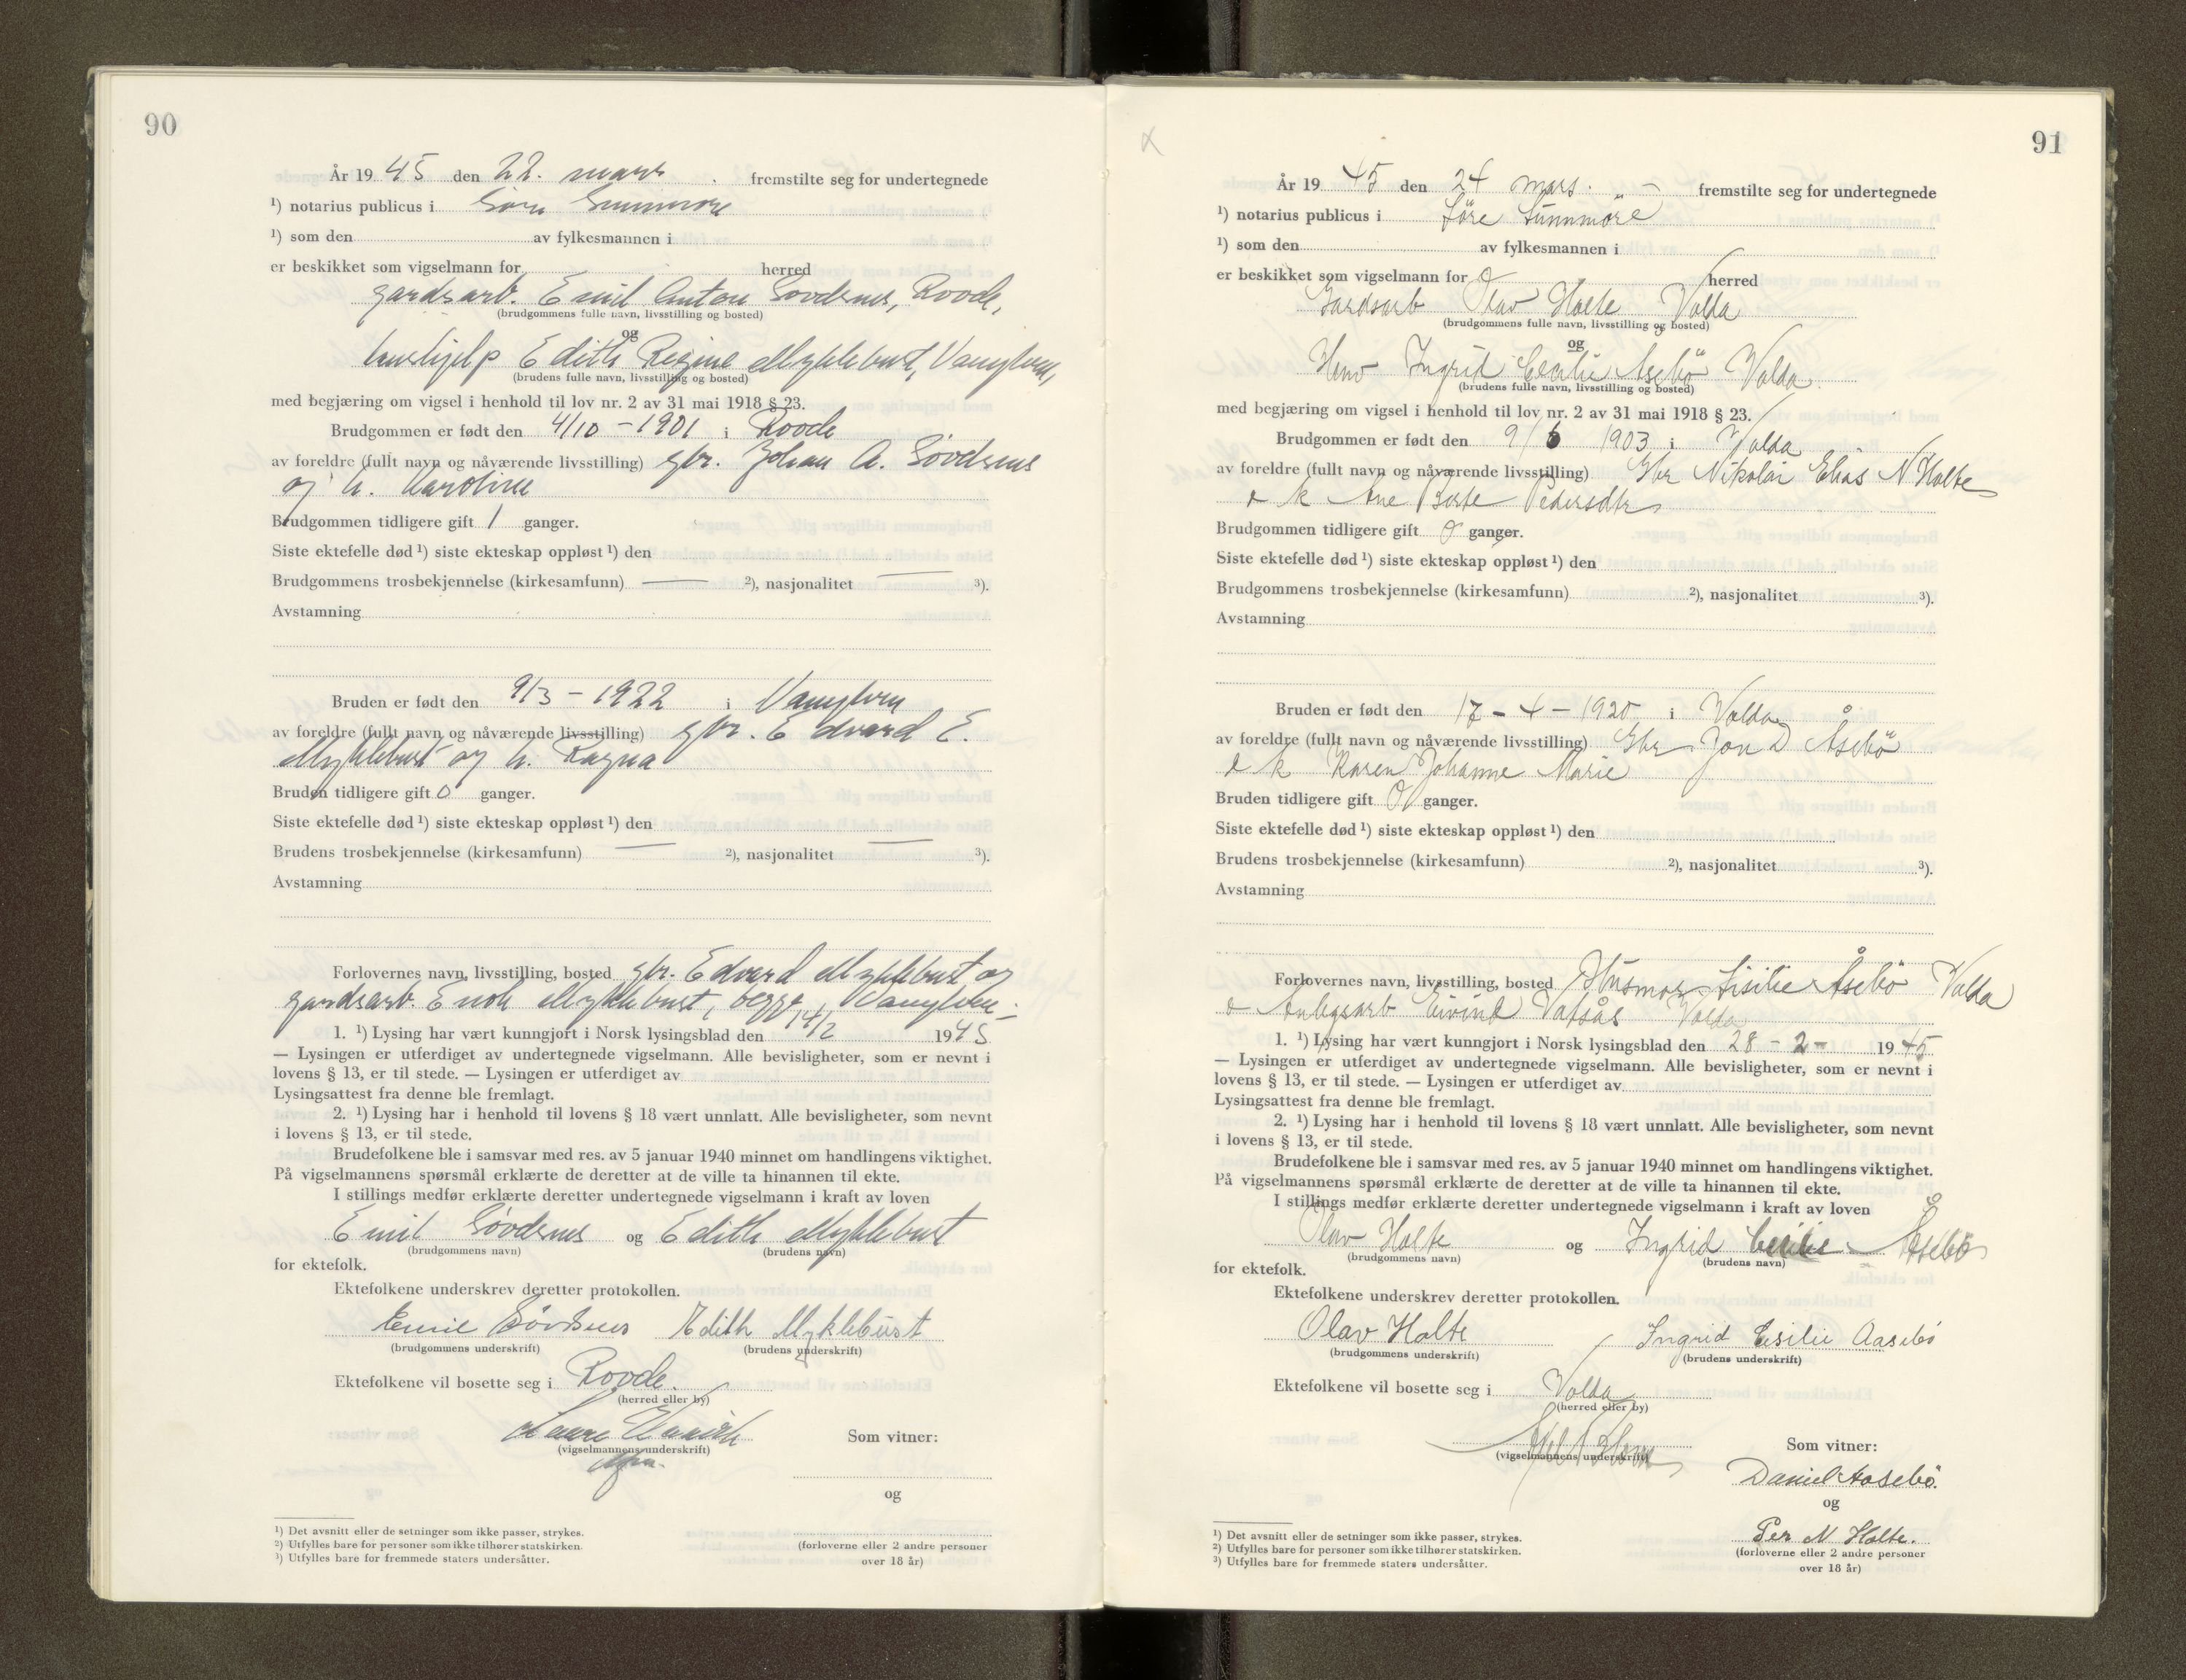 90
År 19 45 den 22. mars . fremstilte seg for undertegnede
¹) notarius publicus i Søre Sunnmøre
¹) som den av fylkesmannen i
er beskikket som vigselmann for herred
gardsarb. Emil Anton Søvdsnes, Rovde,
(brudgommens fulle navn, livsstilling og bosted)
og
hushjelp Edith Regine Myklebust, Vanylven,
(brudens fulle navn, livsstilling og bosted)
med begjæring om vigsel i henhold til lov nr. 2 av 31 mai 1918 § 23.
Brudgommen er født den 4/10 - 1901 i Rovde
av foreldre (fullt navn og nåværende livsstilling) gbr. Johan A. Søvdsnes
og h. Karoline
Brudgommen tidligere gift 1 ganger.
Siste ektefelle død ¹) siste ekteskap oppløst ¹) den
Brudgommens trosbekjennelse (kirkesamfunn) — ²), nasjonalitet — ³).
Avstamning
Bruden er født den 9/3 - 1922 i Vanylven
av foreldre (fullt navn og nåværende livsstilling) gbr. Edvard E.
Myklebust og h. Ragna
Bruden tidligere gift 0 ganger.
Siste ektefelle død ¹) siste ekteskap oppløst ¹) den
Brudens trosbekjennelse (kirkesamfunn) — ²), nasjonalitet — ³).
Avstamning
Forlovernes navn, livsstilling, bosted gbr. Edvard Myklebust og
gardsarb. Enok Myklebust, begge, Vanylven.
1. ¹) Lysing har vært kunngjort i Norsk lysingsblad den 14/2 1945
— Lysingen er utferdiget av undertegnede vigselmann. Alle bevisligheter, som er nevnt i
lovens § 13, er til stede. — Lysingen er utferdiget av
Lysingsattest fra denne ble fremlagt.
2. ¹) Lysing har i henhold til lovens § 18 vært unnlatt. Alle bevisligheter, som nevnt
i lovens § 13, er til stede.
Brudefolkene ble i samsvar med res. av 5 januar 1940 minnet om handlingens viktighet.
På vigselmannens spørsmål erklærte de deretter at de ville ta hinannen til ekte.
I stillings medfør erklærte deretter undertegnede vigselmann i kraft av loven
Emil Søvdsnes og Edith Myklebust
(brudgommens navn) (brudens navn)
for ektefolk.
Ektefolkene underskrev deretter protokollen.
Emil Søvdsnes Edith Myklebust
(brudgommens underskrift) (brudens underskrift)
Ektefolkene vil bosette seg i Rovde.
(herred eller by)
Som vitner:
(vigselmannens underskrift)
og
¹) Det avsnitt eller de setninger som ikke passer, strykes.
²) Utfylles bare for personer som ikke tilhører statskirken.
³) Utfylles bare for fremmede staters undersåtter.
(forloverne eller 2 andre personer
over 18 år)
91
År 19 45 den 24 mars. fremstilte seg for undertegnede
¹) notarius publicus i Søre Sunnmöre
¹) som den av fylkesmannen i
er beskikket som vigselmann for herred
Gardsarb Olav Holte Volda
(brudgommens fulle navn, livsstilling og bosted)
og
Ingrid Cecilie Aasebö Volda
(brudens fulle navn, livsstilling og bosted)
med begjæring om vigsel i henhold til lov nr. 2 av 31 mai 1918 § 23.
Brudgommen er født den 9/6 1903 i Volda
av foreldre (fullt navn og nåværende livsstilling) Gbr Nikolai Elias N Holte
o k Ane Berte Pedersdtr
Brudgommen tidligere gift 0 ganger.
Siste ektefelle død ¹) siste ekteskap oppløst ¹) den
Brudgommens trosbekjennelse (kirkesamfunn) ²), nasjonalitet ³).
Avstamning
Bruden er født den - 4 - 1920 i Volda
av foreldre (fullt navn og nåværende livsstilling) Gbr Jon D Åsebö
o k Karen Johanne Marie
Bruden tidligere gift 0 ganger.
Siste ektefelle død ¹) siste ekteskap oppløst ¹) den
Brudens trosbekjennelse (kirkesamfunn) ²), nasjonalitet ³).
Avstamning
Forlovernes navn, livsstilling, bosted Husmor Sisilie Åsebö Volda
o Anlegsarb Eivind Vatsås Volda
1. ¹) Lysing har vært kunngjort i Norsk lysingsblad den 28 - 2 - 1945
— Lysingen er utferdiget av undertegnede vigselmann. Alle bevisligheter, som er nevnt i
lovens § 13, er til stede. — Lysingen er utferdiget av
Lysingsattest fra denne ble fremlagt.
2. ¹) Lysing har i henhold til lovens § 18 vært unnlatt. Alle bevisligheter, som nevnt
i lovens § 13, er til stede.
Brudefolkene ble i samsvar med res. av 5 januar 1940 minnet om handlingens viktighet.
På vigselmannens spørsmål erklærte de deretter at de ville ta hinannen til ekte.
I stillings medfør erklærte deretter undertegnede vigselmann i kraft av loven
Olav Holte og Ingrid Cecilie Åsebö
(brudgommens navn) (brudens navn)
for ektefolk.
Ektefolkene underskrev deretter protokollen.
Olav Holte Ingrid Cesilie Aasebö
(brudgommens underskrift) (brudens underskrift)
Ektefolkene vil bosette seg i Volda
(herred eller by)
Som vitner:
(vigselmannens underskrift)
Daniel Aasebö.
og
Per N Holte.
¹) Det avsnitt eller de setninger som ikke passer, strykes.
²) Utfylles bare for personer som ikke tilhører statskirken.
³) Utfylles bare for fremmede staters undersåtter.
(forloverne eller 2 andre personer
over 18 år)